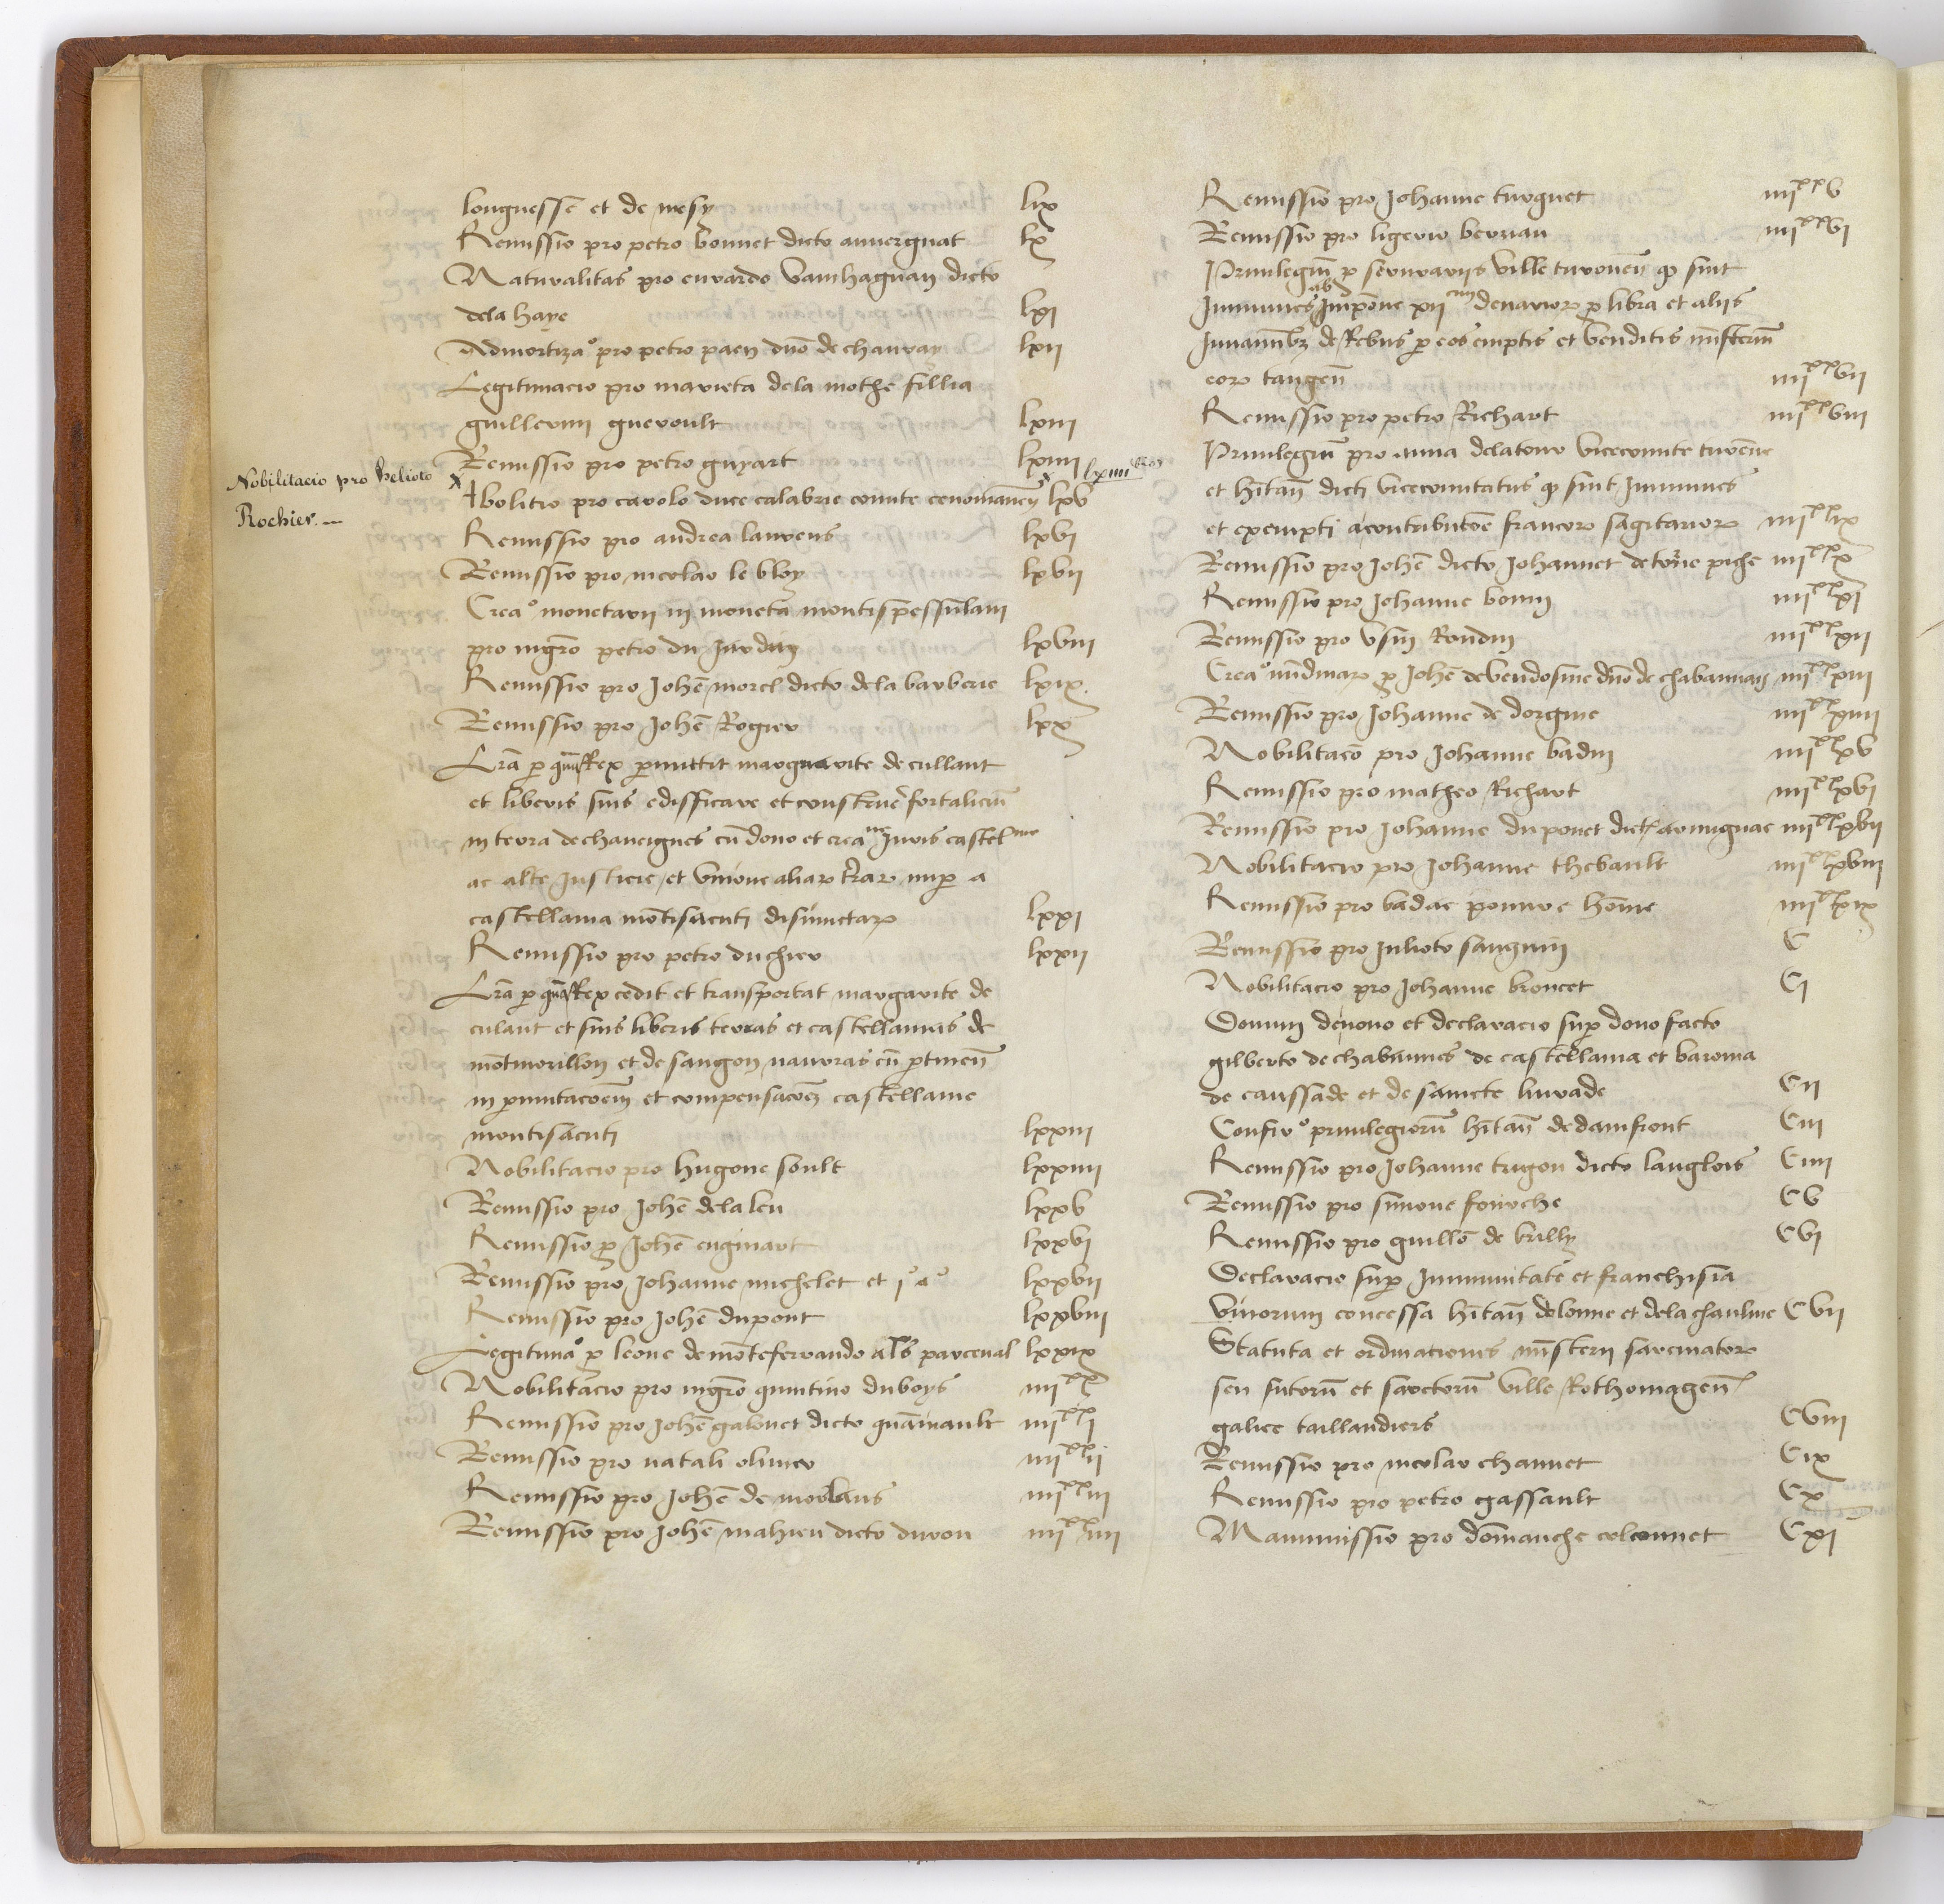 longuessē et de mesy lix
Remissio pro petro bonnet dicto auvergnat lx
Naturalitas pro evrardo vamhaguan dicto
dela haye lxi
Admortiza° pro petro paen dn̄o de chauvay lxii
Legitimacio pro marieta dela mothe fillia
guillermi gueroult lxiii
Remissio pro petro guyart lxiiii
Nobilitacio pro helioto
Rochier.
lxiiii
Abolitio pro carolo duce calabrie comite cenomanen̄ lxv
Remissio pro andrea laurens lxvi
Remissio pro nicolao le bloy lxvii
Crea° monetarii in moneta montispessulani
pro mgr̄o petro du jardin lxviii
Remissio pro Johē morel dicto dela barberie lxix
Remissio pro Johē Rogier lxx
Lrā p quā Rex permittit margarite de cullant
et liberis suis edifficare et construe fortaliciū
in terra de chaveignes cū dono et crea ne juris castel nie
ac alte justicie et unione aliar trar nup a
castellania montisacuti disiunctar lxxi
Remissio pro petro duchier lxxii
Lrā p quā Rex cedit et transportat margarite de
culant et suis liberis terras et castellanias de
mōtmorillon et de sangon navoras cū ptinen̄
in pmutacōem et compensacōem castellanie
montisacuti lxxiii
Nobilitacio pro hugone soult lxxiiii
Remissio pro Johē dela leu lxxv
Remissio p Johē enginart lxxvi
Remissio pro Johanne michelet et lxxvii
Remissio pro Johē dupont lxxviii
Legitima° p leone de mōteferrando als parcenal lxxix
Nobilitacio pro mgr̄o quintino duboys iiii xx
Remissio pro Johē gabnet dicto quāmault iiii xx i
Remissio pro natali olivier iiii xx ii
Remissio pro Johē de morlans iiii xx iii
Remissio pro Johē mahieu dicto duron iiii xx iiii
Remissio pro Johanne turguet iiii xx v
Remissio pro ligerio bernan iiii xx vi
Privilegiū p serurariis ville turonen̄ qd sint
immunes ab imposicione xii cim denarior p libra et aliis
juvamībz de Rebus p eos emptis et venditis misteriū
eor tangen̄ iiii xx vii
Remissio pro petro Richart iiii xx viii
Privilegiū pro anna delatour vicecomite turēne
et hītan̄ dicti vicecomitatus qd sint immunes
et exempti acontributōe francor sagitarior iiii xx ix
Remissio pro Johē dicto Johannet de torre piche iiii xx x
Remissio pro Johanne bonin iiii xx xi
Remissio pro Usin Rondin iiii xx xii
Crea° nūdinar p Johē de vendosme dn̄o de chabannay iiii xx xiii
Remissio pro Johanne de dorgnie iiii xx xiiii
Nobilitacō pro Johanne badin iiii xx xv
Remissio pro matheo Richart iiii xx xvi
Remissio pro Johanne duponet dict armignac iiii xx xvii
Nobilitacio pro Johanne thebault iiii xx xviii
Remissio pro badac pouvre hōme iiii xx xix
Remissio pro julioto sanznin C
Nobilitacio pro Johanne broncet Ci
Donum denovo et declaracio sup dono facto
gilberto de chabannes de castellania et baronia
de caussade et de saincte livrade Cii
Confir° privilegiorū hītan̄ de damfront Ciii
Remissio pro Johanne tugon dicto langlois Ciiii
Remissio pro simone fouroche Cv
Remissio pro guillō de brilly Cvi
Declaracio sup immunitate et franchisia
vinorum concessa hītan̄ dolonne et dela chaulme Cvii
Statuta et ordinationes misterii sarcinator
seu sutorū et sarctorū ville Rothomagen̄
galice taillandiers Cviii
Remissio pro nicolao channet Cix
Remissio pro petro gassault Cx
Manumissio pro domanche colconnet Cxi